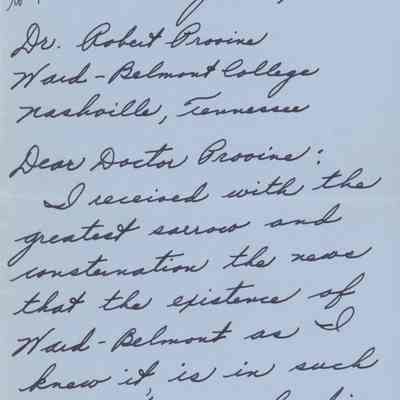 Dr. Robert Provine
Ward-Belmont College
Nashville, Tennessee
Dear Doctor Provine:
I received with the
greatest sorrow and
consternation the news
that the existence of
Ward-Belmont as I
knew it, is in such